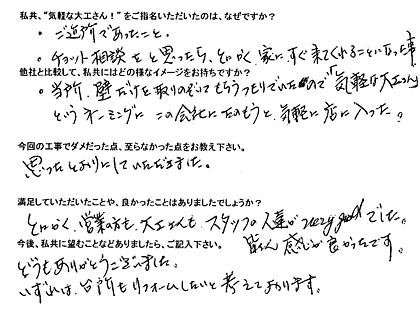 私共、“気軽な大工さん！”をご指名いただいたのは、なぜですか？
・ご近所であったこと。
・チョット相談をと思ったら、とにかく、家にすぐ来てくれることになった事。
他社と比較して、私共にはどの様なイメージをお持ちですか？
・当所、壁だけを取りのぞいてもらうつもりでいたので「気軽な大工さん」
というネーミングに この会社にたのもうと、気軽に店に入った。
今回の工事でダメだった点、至らなかった点をお教え下さい。
思ったとおりにしていただきました。
満足していただいたことや、良かったことはありましたでしょうか？
とにかく、営業の方も、大工さんも、スタッフの人達が very good でした。
皆さん 感じが良かったです。
今後、私共に望むことなどありましたら、ご記入下さい。
どうもありがとうございました。
いずれは、台所もリフォームしたいと考えております。